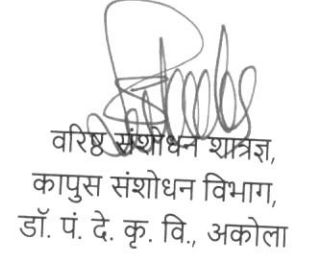 वरिष्ठ संशोधन शात्रज्ञ,
कापुस संशोधन विभाग,
डॉ. पं. दे. कृ. वि., अकोला